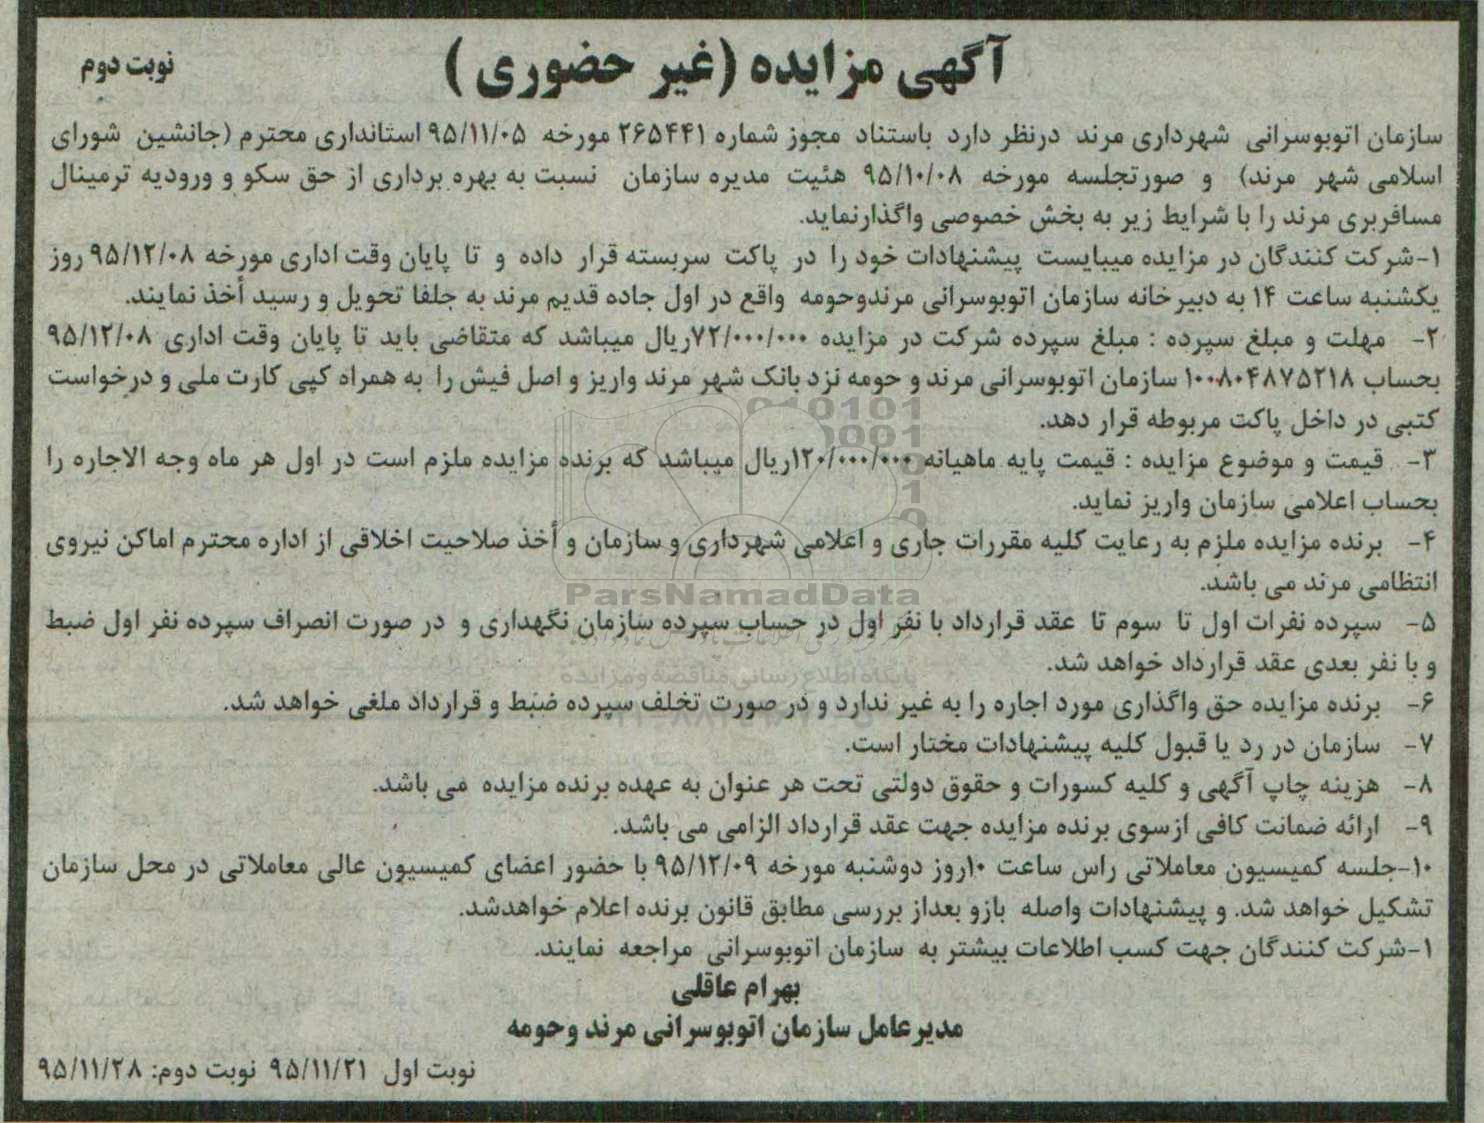 آگهی مزایده (غیر حضوری)
نوبت دوم
سازمان اتوبوسرانی شهرداری مرند درنظر دارد باستناد مجوز شماره ۲۶۵۴۴۱ مورخه ۹۵/۱۱/۰۵ استانداری محترم (جانشین شورای
اسلامی شهر مرند) و صورتجلسه مورخه ۹۵/۱۰/۰۸ هئیت مدیره سازمان نسبت به بهره برداری از حق سکو و ورودیه ترمینال
مسافربری مرند را با شرایط زیر به بخش خصوصی واگذارنماید.
۱-شرکت کنندگان در مزایده میبایست پیشنهادات خود را در پاکت سربسته قرار داده و تا پایان وقت اداری مورخه ۹۵/۱۲/۰۸ روز
یکشنبه ساعت ۱۴ به دبیرخانه سازمان اتوبوسرانی مرندوحومه واقع در اول جاده قدیم مرند به جلفا تحویل و رسید أخذ نمایند.
۲- مهلت و مبلغ سپرده : مبلغ سپرده شرکت در مزایده ۷۲/۰۰۰/۰۰۰ریال میباشد که متقاضی باید تا پایان وقت اداری ۹۵/۱۲/۰۸
بحساب ۱۰۰۸۰۴۸۷۵۲۱۸ سازمان اتوبوسرانی مرند و حومه نزد بانک شهر مرند واریز و اصل فیش را به همراه کپی کارت ملی و درخواست
کتبی در داخل پاکت مربوطه قرار دهد.
۳- قیمت و موضوع مزایده : قیمت پایه ماهیانه ۱۲۰/۰۰۰/۰۰۰ریال میباشد که برنده مزایده ملزم است در اول هر ماه وجه الاجاره را
بحساب اعلامی سازمان واریز نماید.
۴- برنده مزایده ملزم به رعایت کلیه مقررات جاری و اعلامی شهرداری و سازمان و أخذ صلاحیت اخلاقی از اداره محترم اماکن نیروی
انتظامی مرند می باشد.
۵- سپرده نفرات اول تا سوم تا عقد قرارداد با نفر اول در حساب سپرده سازمان نگهداری و در صورت انصراف سپرده نفر اول ضبط
و با نفر بعدی عقد قرارداد خواهد شد.
۶- برنده مزایده حق واگذاری مورد اجاره را به غیر ندارد و در صورت تخلف سپرده ضبط و قرارداد ملغی خواهد شد.
۷- سازمان در رد یا قبول کلیه پیشنهادات مختار است.
۸- هزینه چاپ آگهی و کلیه کسورات و حقوق دولتی تحت هر عنوان به عهده برنده مزایده می باشد.
۹- ارائه ضمانت کافی ازسوی برنده مزایده جهت عقد قرارداد الزامی می باشد.
۱۰-جلسه کمیسیون معاملاتی راس ساعت ۱۰روز دوشنبه مورخه ۹۵/۱۲/۰۹ با حضور اعضای کمیسیون عالی معاملاتی در محل سازمان
تشکیل خواهد شد. و پیشنهادات واصله بازو بعداز بررسی مطابق قانون برنده اعلام خواهدشد.
۱-شرکت کنندگان جهت کسب اطلاعات بیشتر به سازمان اتوبوسرانی مراجعه نمایند.
بهرام عاقلی
مدیرعامل سازمان اتوبوسرانی مرند وحومه
نوبت اول ۹۵/۱۱/۲۱ نوبت دوم: ۹۵/۱۱/۲۸
ParsNamadData
پایگاه اطلاع رسانی مناقصه و مزایده